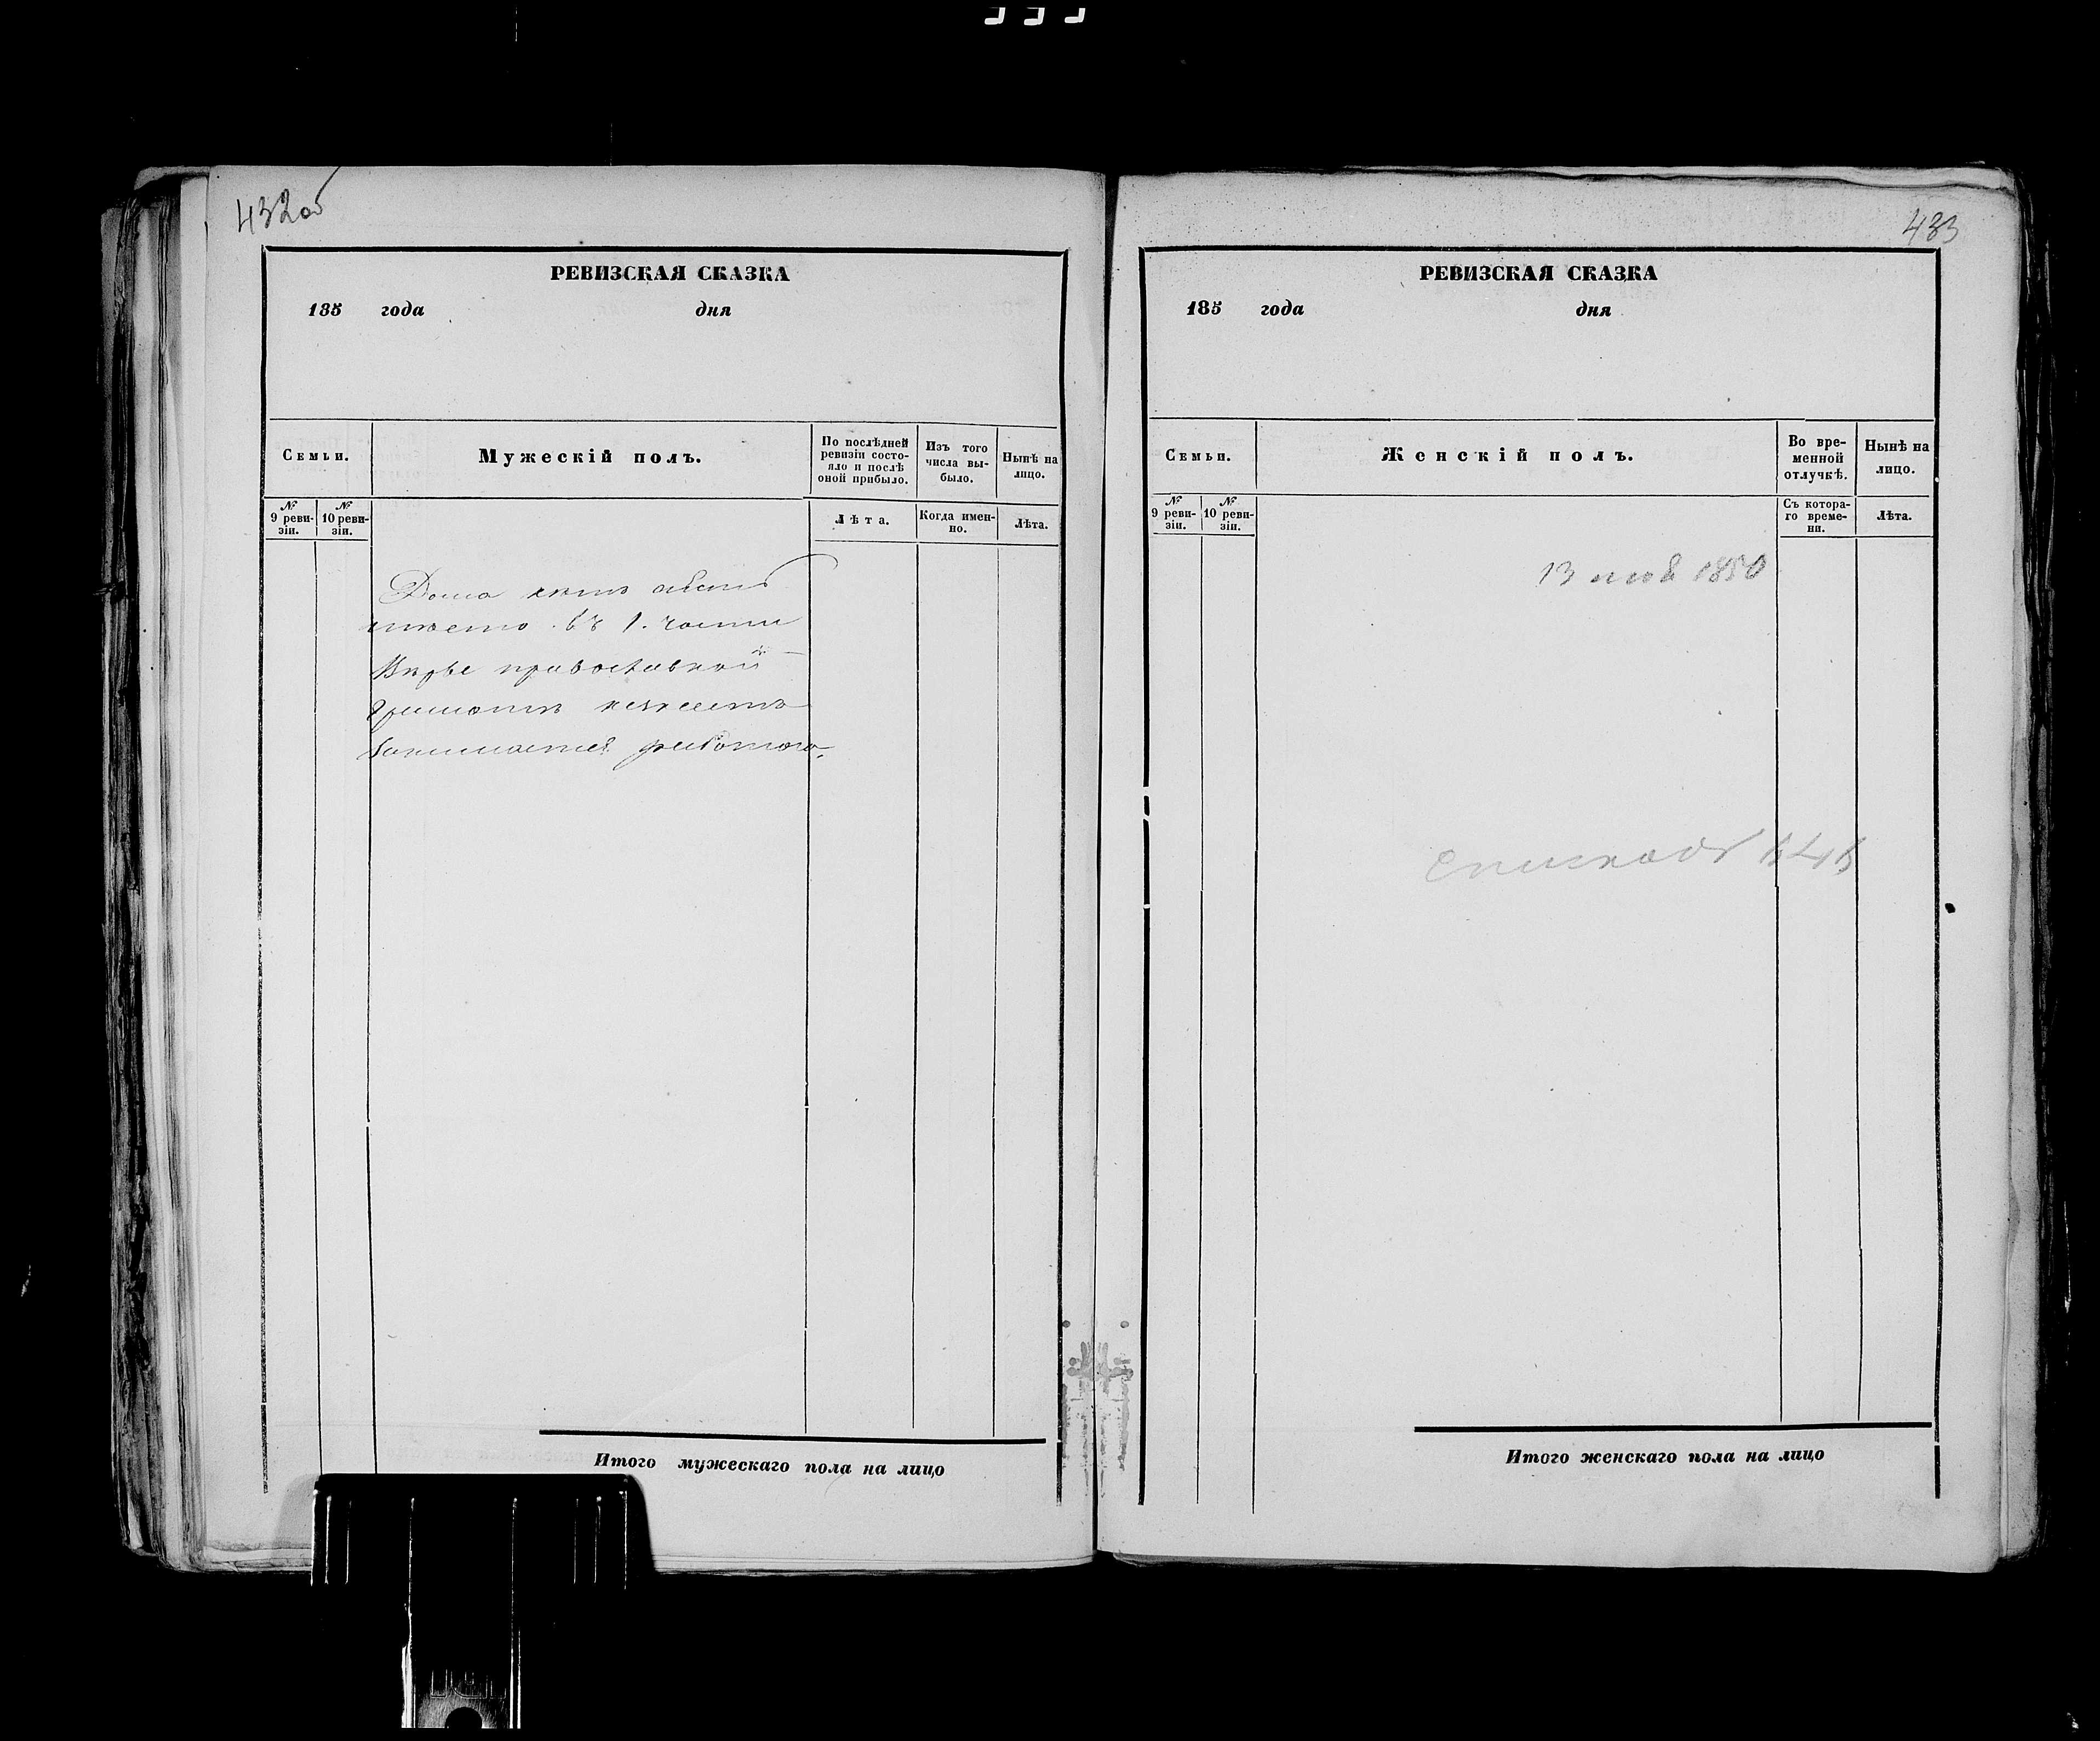 432об
РЕВИЗСКАЯ СКАЗКА
185 года дня
Семьи.
Мужескій полъ.
По послѣдней
ревизіи состо-
яло и послѣ
оной прибыло.
Изъ того
числа вы-
было.
Нынѣ на
лицо.
№
9 реви-
зіи.
№
10 реви-
зіи.
Лѣта.
Когда имен-
но.
Лѣта.
Дома нетъ
въ 1. части
Вѣры православной
Грамотѣ
Занимается работою.
Итого мужескаго пола на лицо
433
РЕВИЗСКАЯ СКАЗКА
185 года дня
Семьи.
Женскій полъ.
Во вре-
менной
отлучкѣ.
Нынѣ на
лицо.
№
9 реви-
зіи.
№
10 реви-
зіи.
Съ котора-
го време-
ни.
Лѣта.
13 1850
Итого женскаго пола на лицо